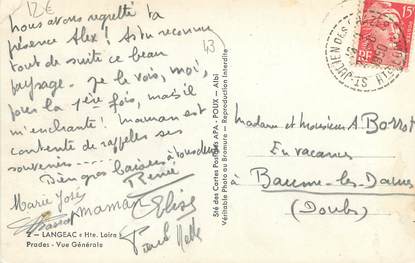 12€
nous avons regretté ta
présence Alex! As tu reconnu
tout de suite ce beau
paysage. Je le vois, moi,
pour la 1ère fois, mais il
m'enchante! maman est
contente de rappeler ses
souvenirs
Bien gros baisers à tous deux
Renée
Marie José
maman
Elise
43
2 - LANGEAC « Hte. Loire »
Prades - Vue Générale
Sté des Cartes Postales APA - POUX - Albi
Véritable Photo au Bromure - Reproduction Interdite
15F
RF
madame et monsieur A. Borrot
En vacances
à Baume-les-Dames
(Doubs)